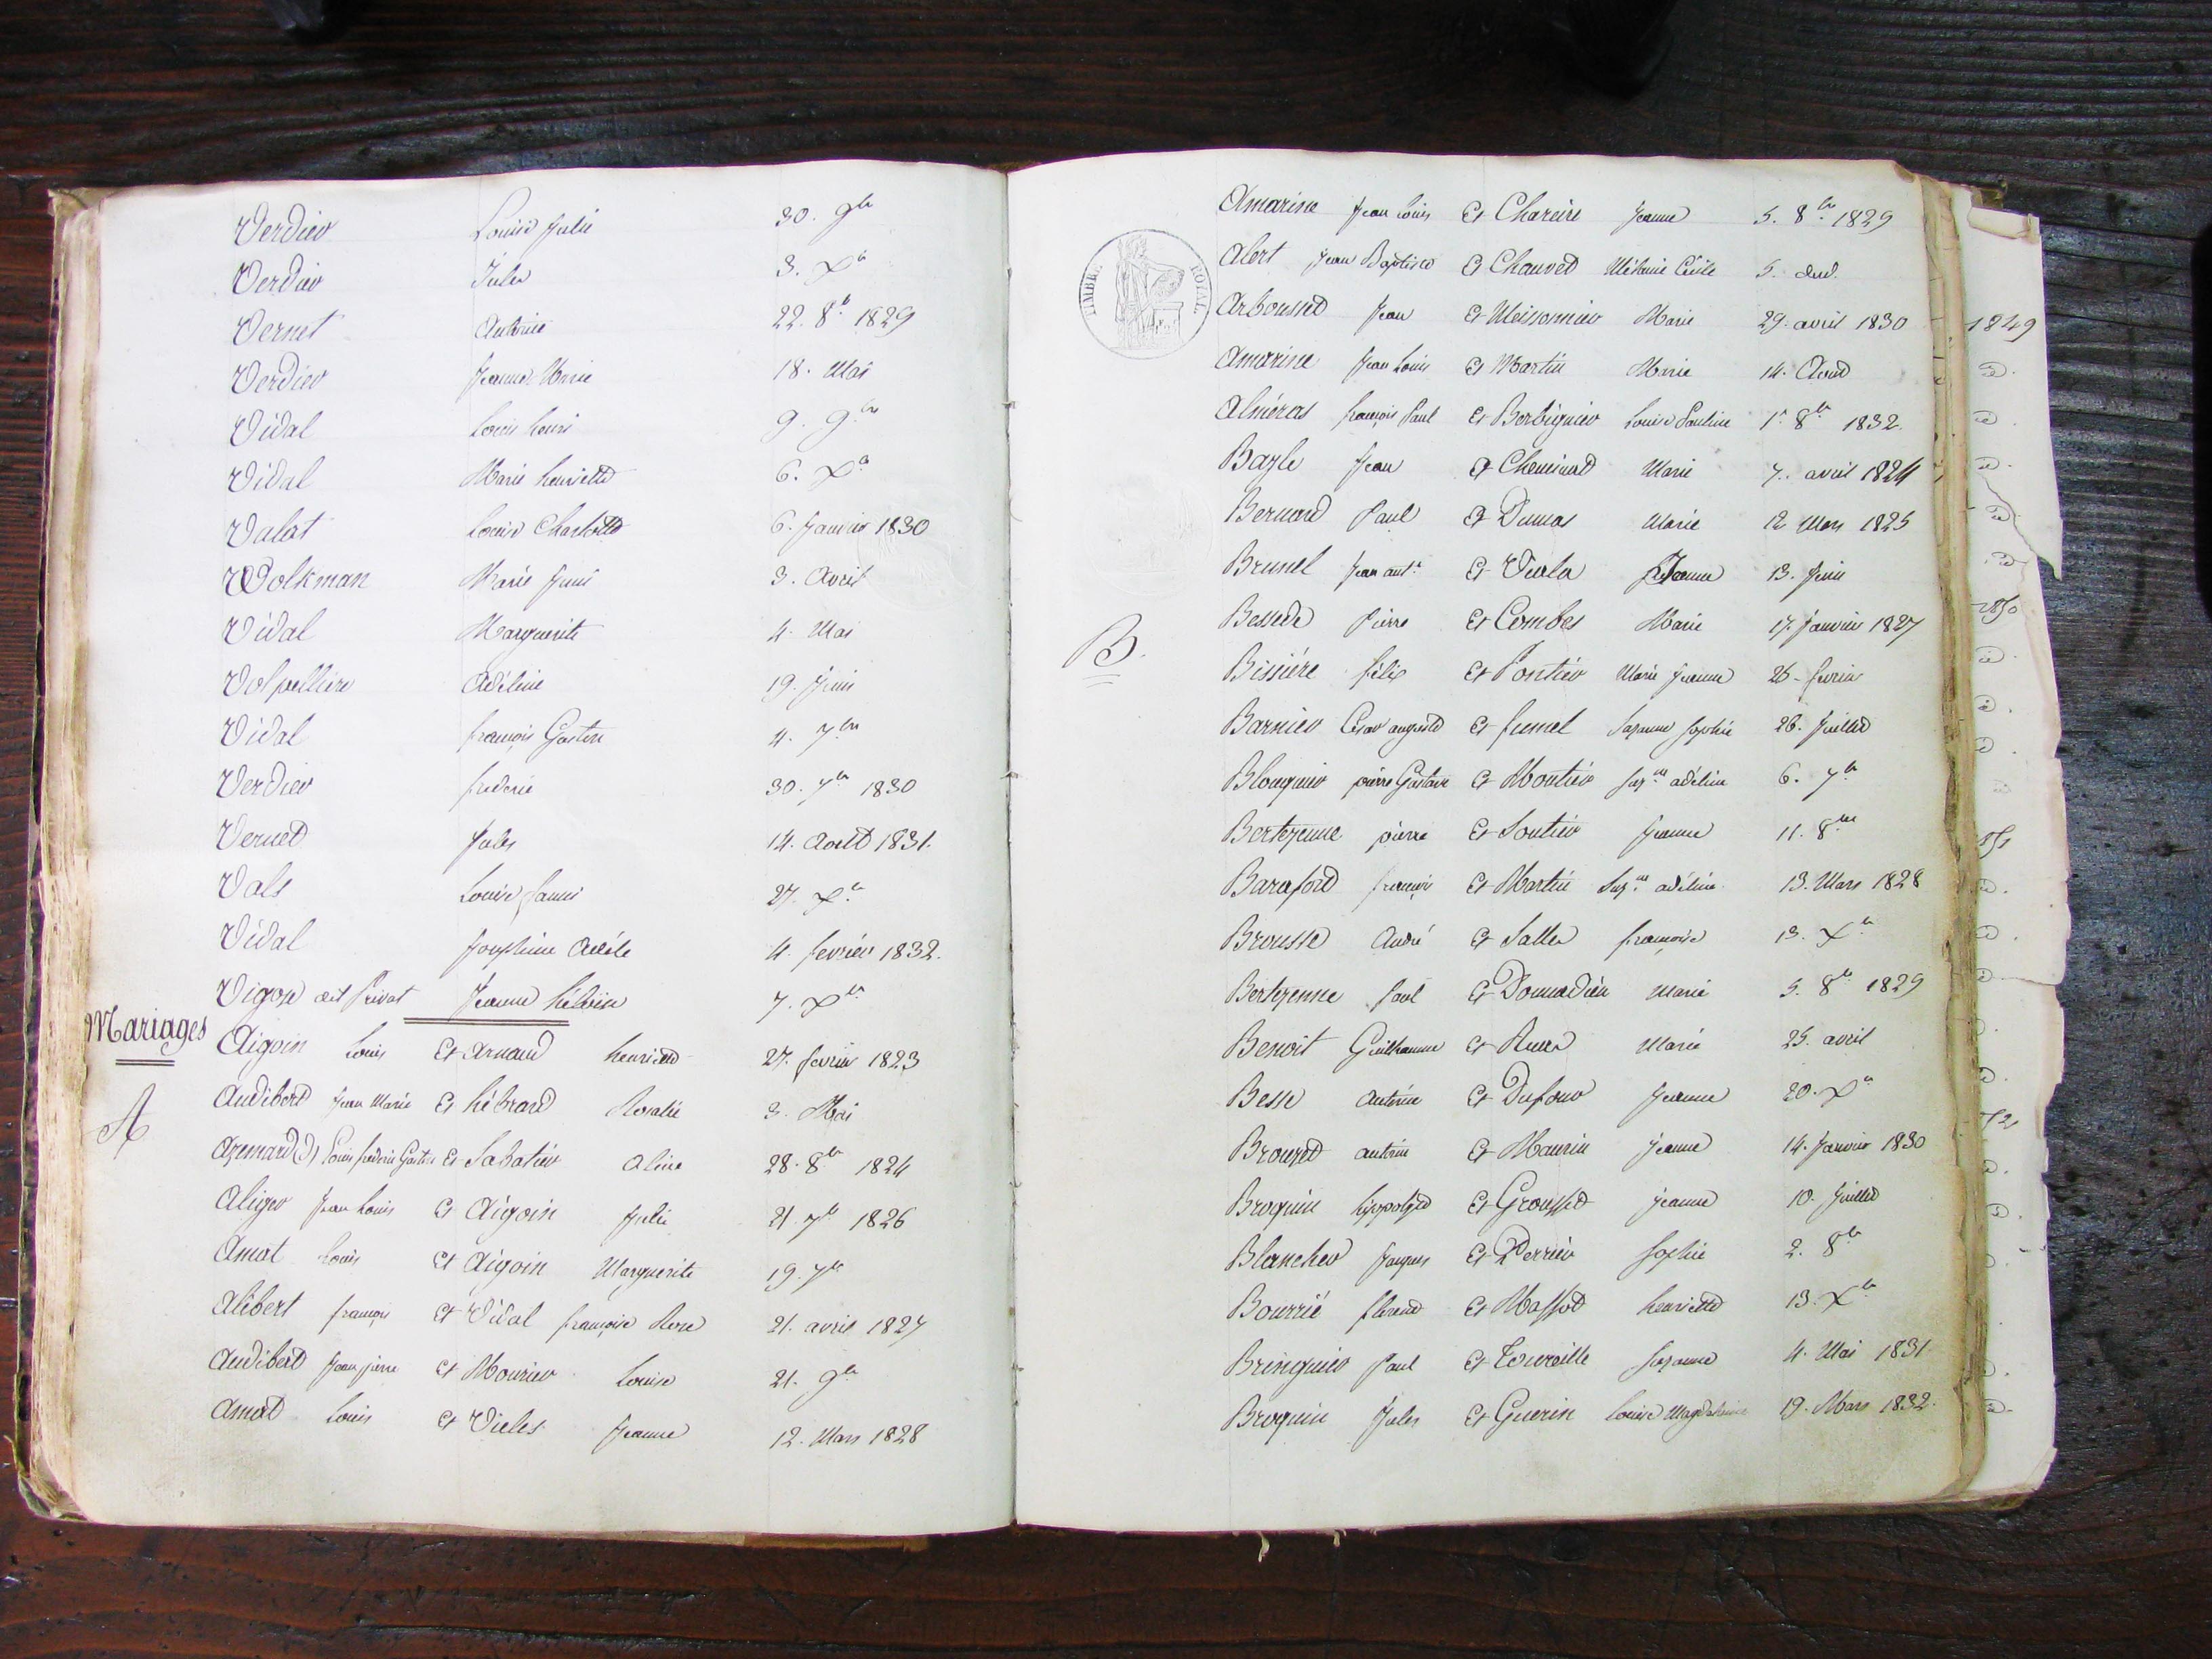 Verdier Louise Julie 30. 9bre
Verdier Jules 3. Xbre
Vernet Antoine 22. 8bre 1829
Verdier Jeanne Marie 18. Mai
Vidal Louis henri 9. 9bre
Vidal Marie henriette 6. Xbre
Valat Louise Charlotte 6. Janvier 1830
Wolkman Marie 3. Avril
Vidal Marguerite 4. Mai
Volpelliere Adéline 19. Juin
Vidal françois Gaston 4. 7bre
Verdier frederic 30. 7bre 1830
Vernet Jules 14. Août 1831.
Vals Louise fanni 27. Xbre
Vidal Josephine Adèle 4. fevrier 1832.
Vigose dit Privat Jeanne héloïse 7. Xbre
Mariages
Aigoin Louis Et Arnaud henriette 27. fevrier 1823
A
Audibert Jean Marie Et hébrard Rosalie 3. Mai
Azemard (D) Louis frederic Gaston Et Sabatier Aline 28. 8bre 1824
Aliger Jean Louis Et Aigoin Julie 21. 7bre 1826
Amat Louis Et Aigoin Marguerite 19. 7bre
Alibert françois Et Vidal françoise Rose 21. avril 1827
Audibert Jean pierre Et Mourier Louise 21. 9bre
Amat Louis Et Vieles Jeanne 12. Mars 1828
TIMBRE ROYAL
Amarine Jean Louis Et Chareire Jeanne 5. 8bre 1829
Alert Jean Baptiste Et Chauvet Mélanie Cécile 5. dud.
Arbousset Jean Et Meissonnier Marie 29. avril 1830
Amarine Jean Louis Et Martin Marie 14. Aout
Alméras françois Paul Et Berbiguier Louise Pauline 1er 8bre 1832.
Bayle Jean Et Marie 7. avril 1824
Bernard Paul Et Dumas Marie 12 Mars 1825
Brunel Jean ant.e Et Viala Jeanne 13. Juin
B.
Bessede Pierre Et Combes Marie 17. Janvier 1827
Bissiére félix Et Pontier Marie Jeanne 26. fevrier
Barnier Cesar auguste Et fumel Suzanne Sophie 26. Juillet
Blouquier pierre Gustave Et Moutier Suz.ne adéline 6. 7bre
Bertezenne pierre Et Soutier Jeanne 11. 8bre
Barafort françois Et Martin Suz.ne adéline 13. Mars 1828
Brousse André Et Salles françoise 13. Xbre
Bertezenne Paul Et Donnadieu Marie 5. 8bre 1829
Benoit Guilhaume Et Marie 25. avril
Besse Antoine Et Dufour Jeanne 20. Xbre
Brouzet antoine Et Maurin Jeanne 14. Janvier 1830
Broquin hippolyte Et Grousset Jeanne 10. Juillet
Blancher Jacques Et Perrier Sophie 2. 8bre
Bourrié Et Massot henriette 13. Xbre
Bringuier Paul Et Tourville Suzanne 4. Mai 1831
Broquin Jules Et Guerin Louise Magdeleine 19. Mars 1832.
1849